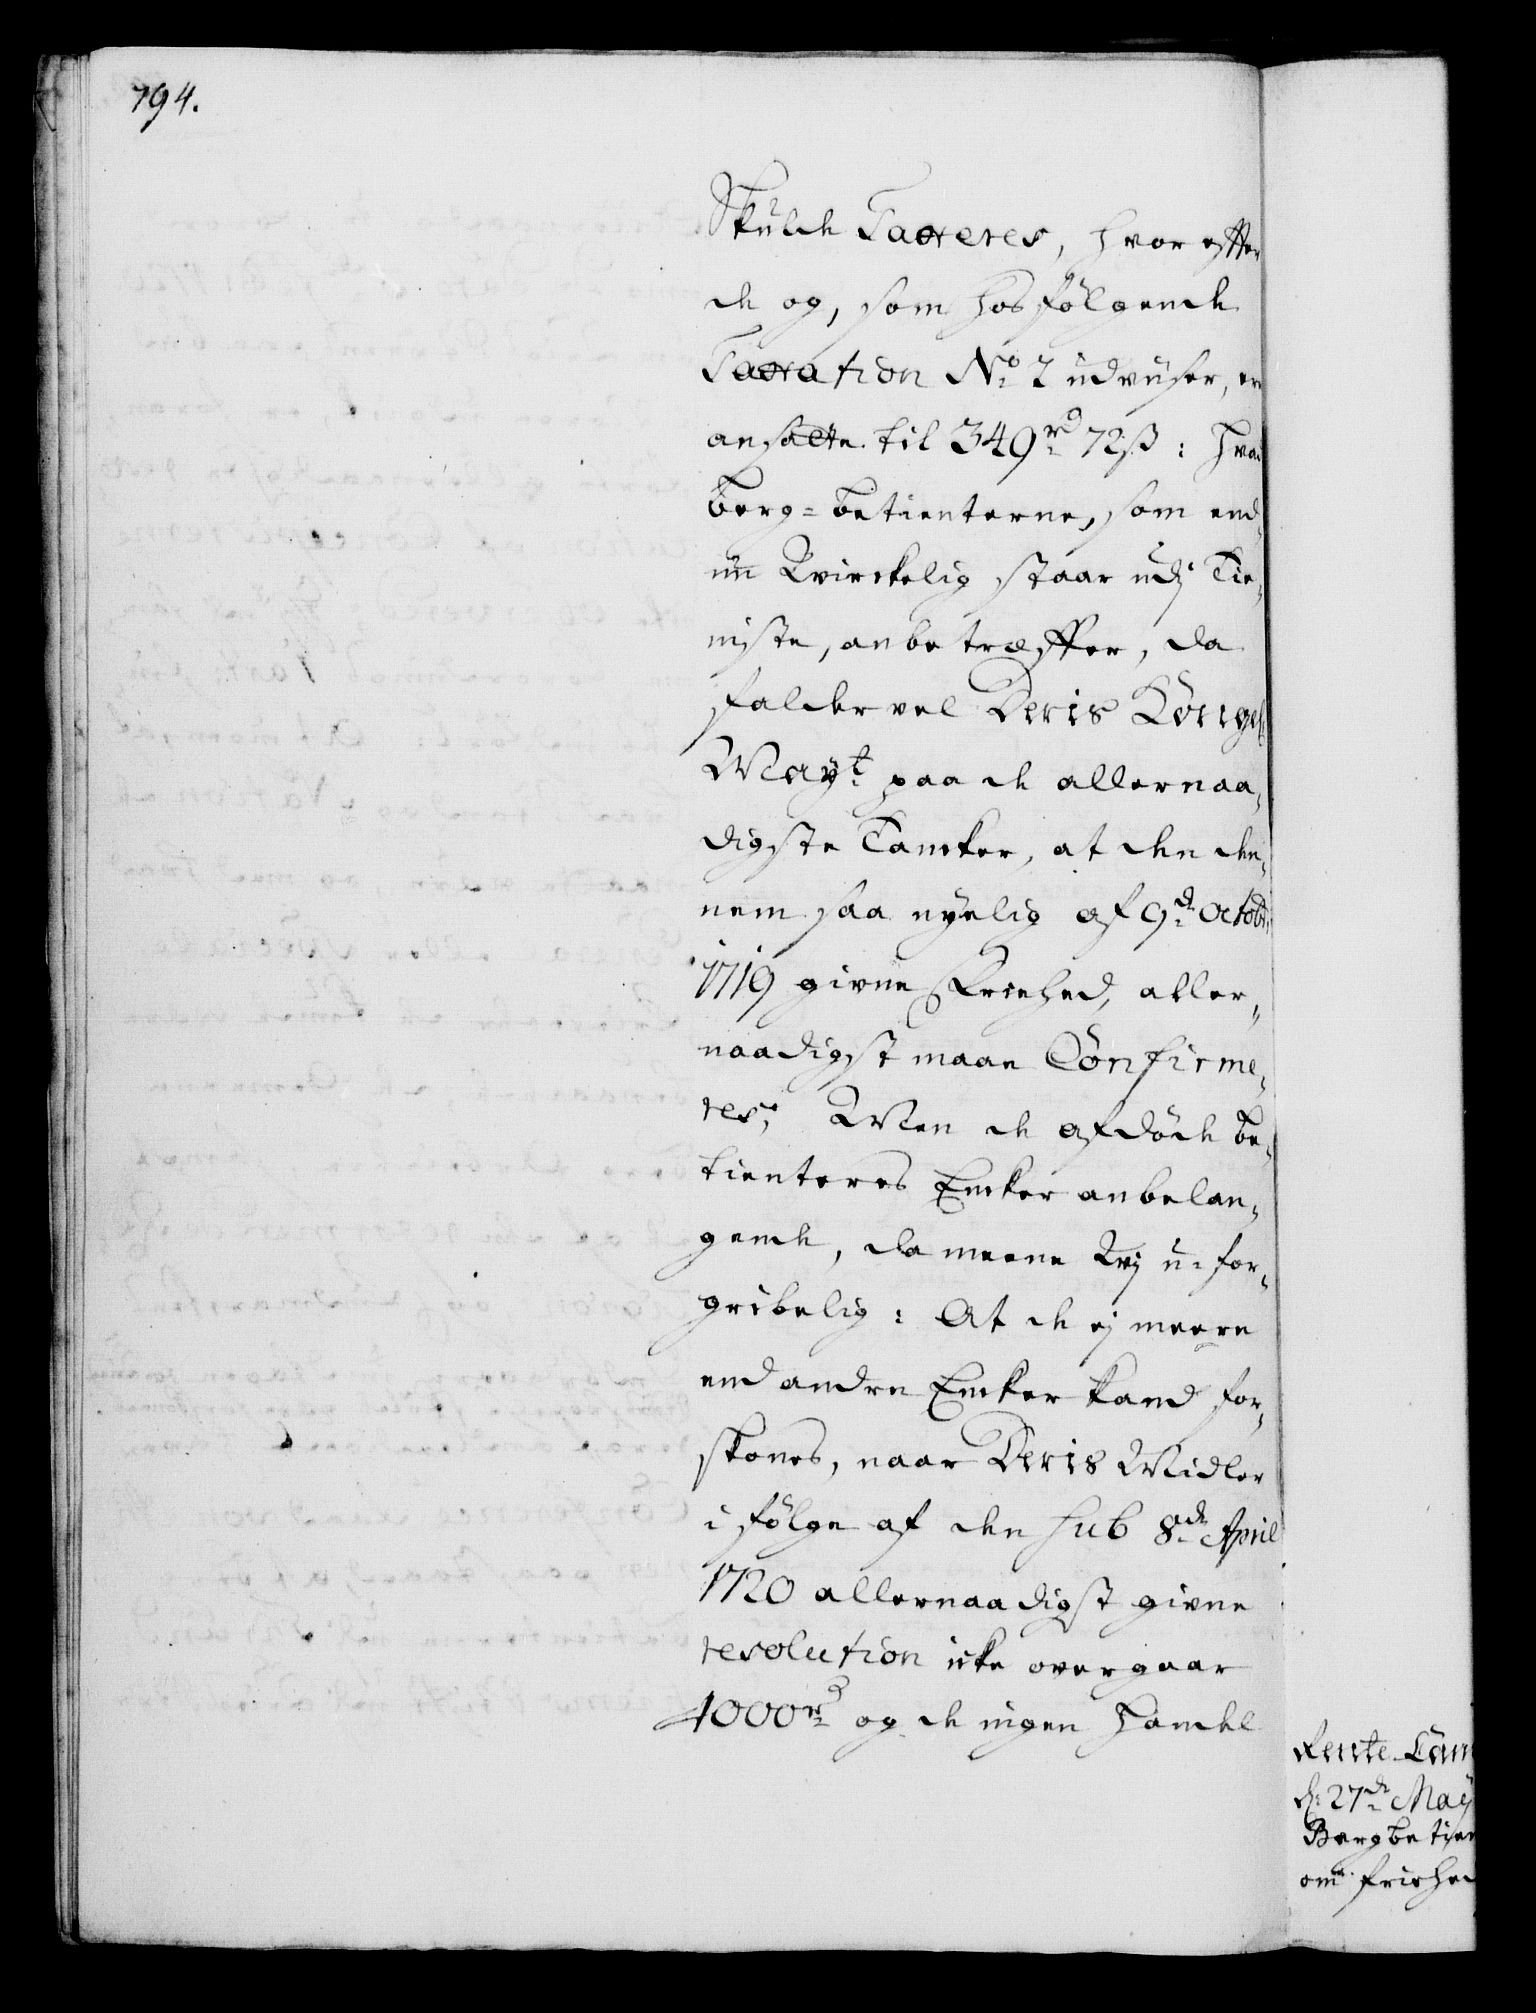 794.
Skulde Taxeres, hvor efter
de og, som hosfølgende
Taxation No. 2 udviiser, er
ansatte til 349 rd 72 ß: hvad
berg-betienterne, som end,
nu Virckelig staar udj Tie,
niste, anbetræffer, da
falder vel Deris Kongel
Mayt. paa de allernaa,
digste Tancker, at den den,
nem saa nyelig af 9de Octobr.
1719 givne Friehed, aller,
naadigst maae Confirme,
res; Men de afdøde be,
tienteres Encker anbelan,
gende, da meene Vj u-for,
gribelig: At de ej meere
end andre Encker kand for,
skones, naar Deris Midler
i følge af den sub 8de April
1720 allernaadigst givne
resolution icke overgaar
4000 rd og de ingen handel
Rente-Cam
d: 27de Maÿ
Bergbetien
om friehed